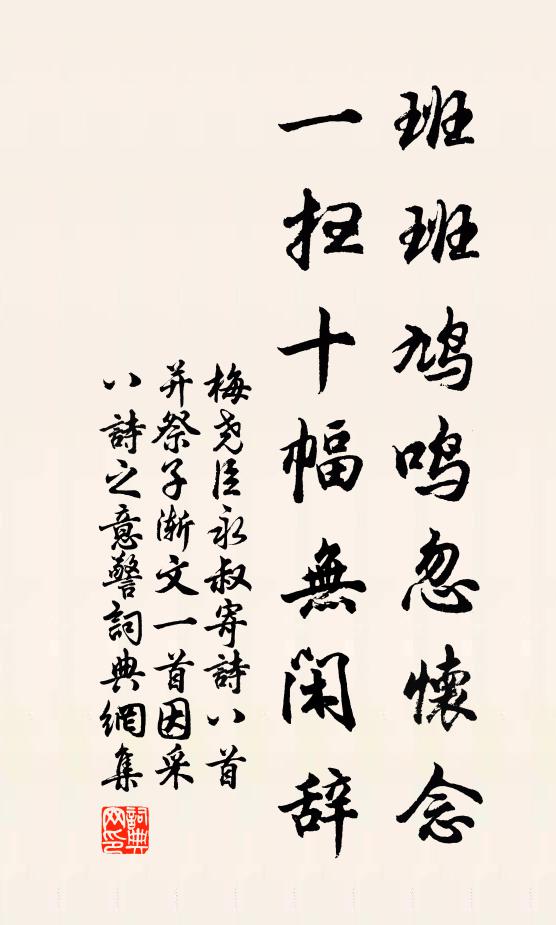 班班鳩鳴忽懷念
一扫十幅無閑辞
梅尧臣永叔寄詩八首
并祭子漸文一首因采
八詩之意警詞典網集
詞典网印